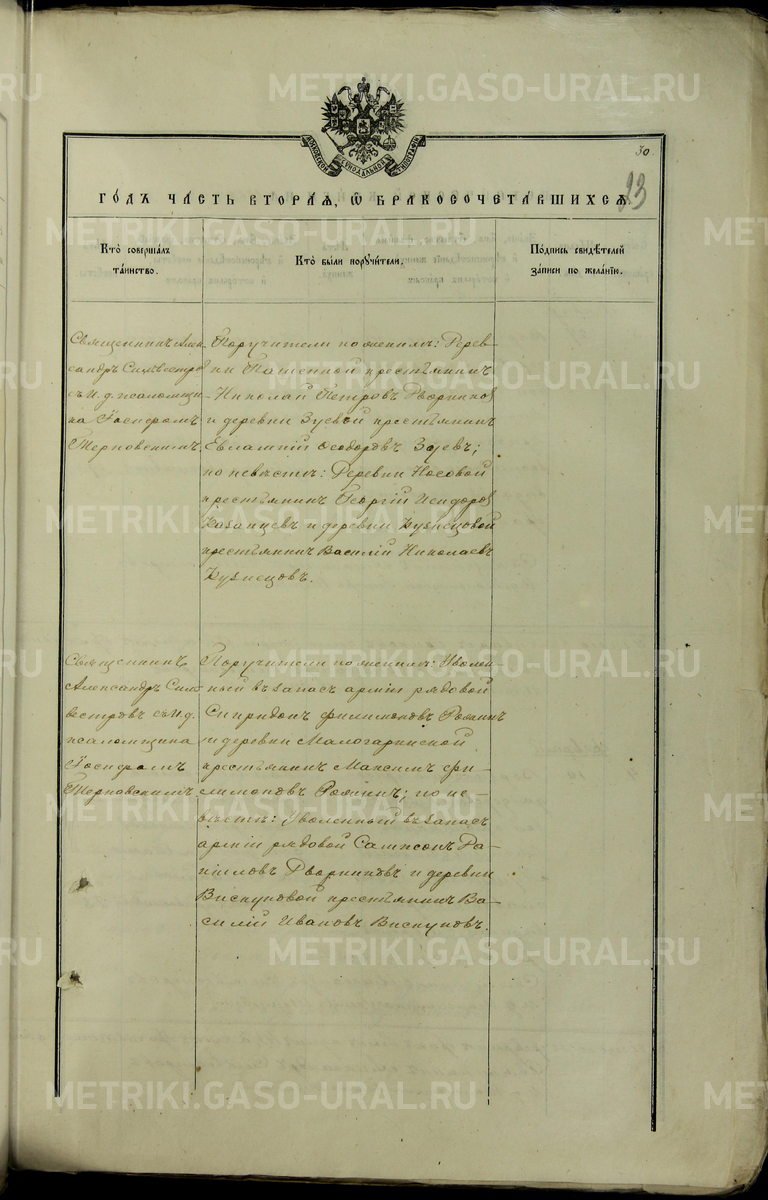 METRIKI.GASO-URAL.RU
30
23
ГОДЪ ЧАСТЬ ВТОРАЯ, Ѿ БРАКОСОЧЕТАВШИХСЯ
Кто̀ соверша́лъ
та́инство.
Кто̀ бы́ли порꙋчи́тели.
По́дпись свидѣ́телей
за́писи по жела́нїю.
Священникъ Алек-
сандръ Сильвестров
съ И. д. псаломщи
ка Гасперомъ
Терновскимъ.
Поручители по женихѣ: Дерев-
ни Ташенной крестьянинъ
Николай Петровъ Дворников
и деревни Зуевой крестьянинъ
Евлампій Ѳеодоровъ Зуевъ;
по невѣстѣ: Деревни Носовой
крестьянинъ Георгій Исидоров
Казанцевъ и деревни Кузнецовой
крестьянинъ Василій Николаевъ
Кузнецовъ.
Священникъ
Александръ Силь
вестровъ съ И. д.
псаломщика
Гасперомъ
Терновскимъ.
Поручители по женихѣ: Уволен-
ный въ запасъ арміи рядовой
Спиридонъ Филимоновъ Рожинъ
и деревни Малогаринской
крестьянинъ Максимъ Фи-
лимоновъ Рожинъ; по не-
вѣстѣ: Уволенный въ запасъ
арміи рядовой Сампсонъ Да-
ніиловъ Дворниковъ и деревни
Вискуновой крестьянинъ Ва-
силій Ивановъ Вискуновъ.